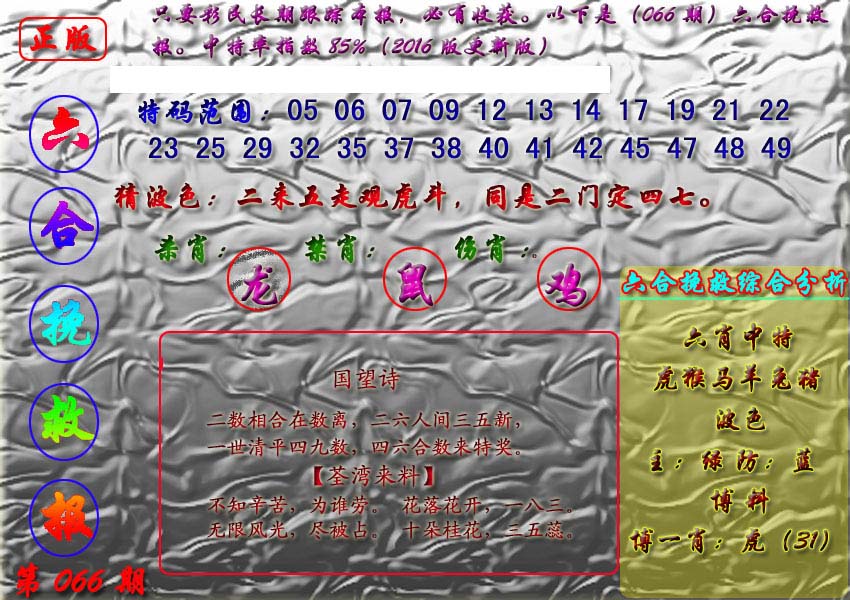 正版
只要彩民长期跟踪本报，必有收获。以下是（066期）六合挽救
报。中特率指数85%（2016版更新版）
六合挽救报
第066期
特码范围：05 06 07 09 12 13 14 17 19 21 22
23 25 29 32 35 37 38 40 41 42 45 47 48 49
猜波色：二来五走观虎斗，同是二门定四七。
杀肖：龙 禁肖：鼠 伤肖：鸡
国望诗
二数相合在数离，二六人间三五新，
一世清平四九数，四六合数来特奖。
【荃湾来料】
不知辛苦，为谁劳。 花落花开，一八三。
无限风光，尽被占。 十朵桂花，三五蕊。
六合挽救综合分析
六肖中特
虎猴马羊兔猪
波色
主：绿 防：蓝
博料
博一肖：虎（31）